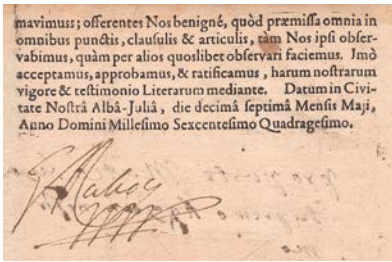 mavimuss; offerentes Nos benigné, quòd præmissa omnia in
omnibus punctis, clausulis & articulis, tàm Nos ipsi obser-
vabimus, quàm per alios quoslibet observari faciemus. Imò
acceptamus, approbamus, & ratificamus, harum nostrarum
vigore & testimonio Literarum mediante. Datum in Civi-
tate Nostrâ Albâ-Juliâ, die decimâ septimâ Mensis Maji,
Anno Domini Millesimo Sexcentesimo Quadragesimo.